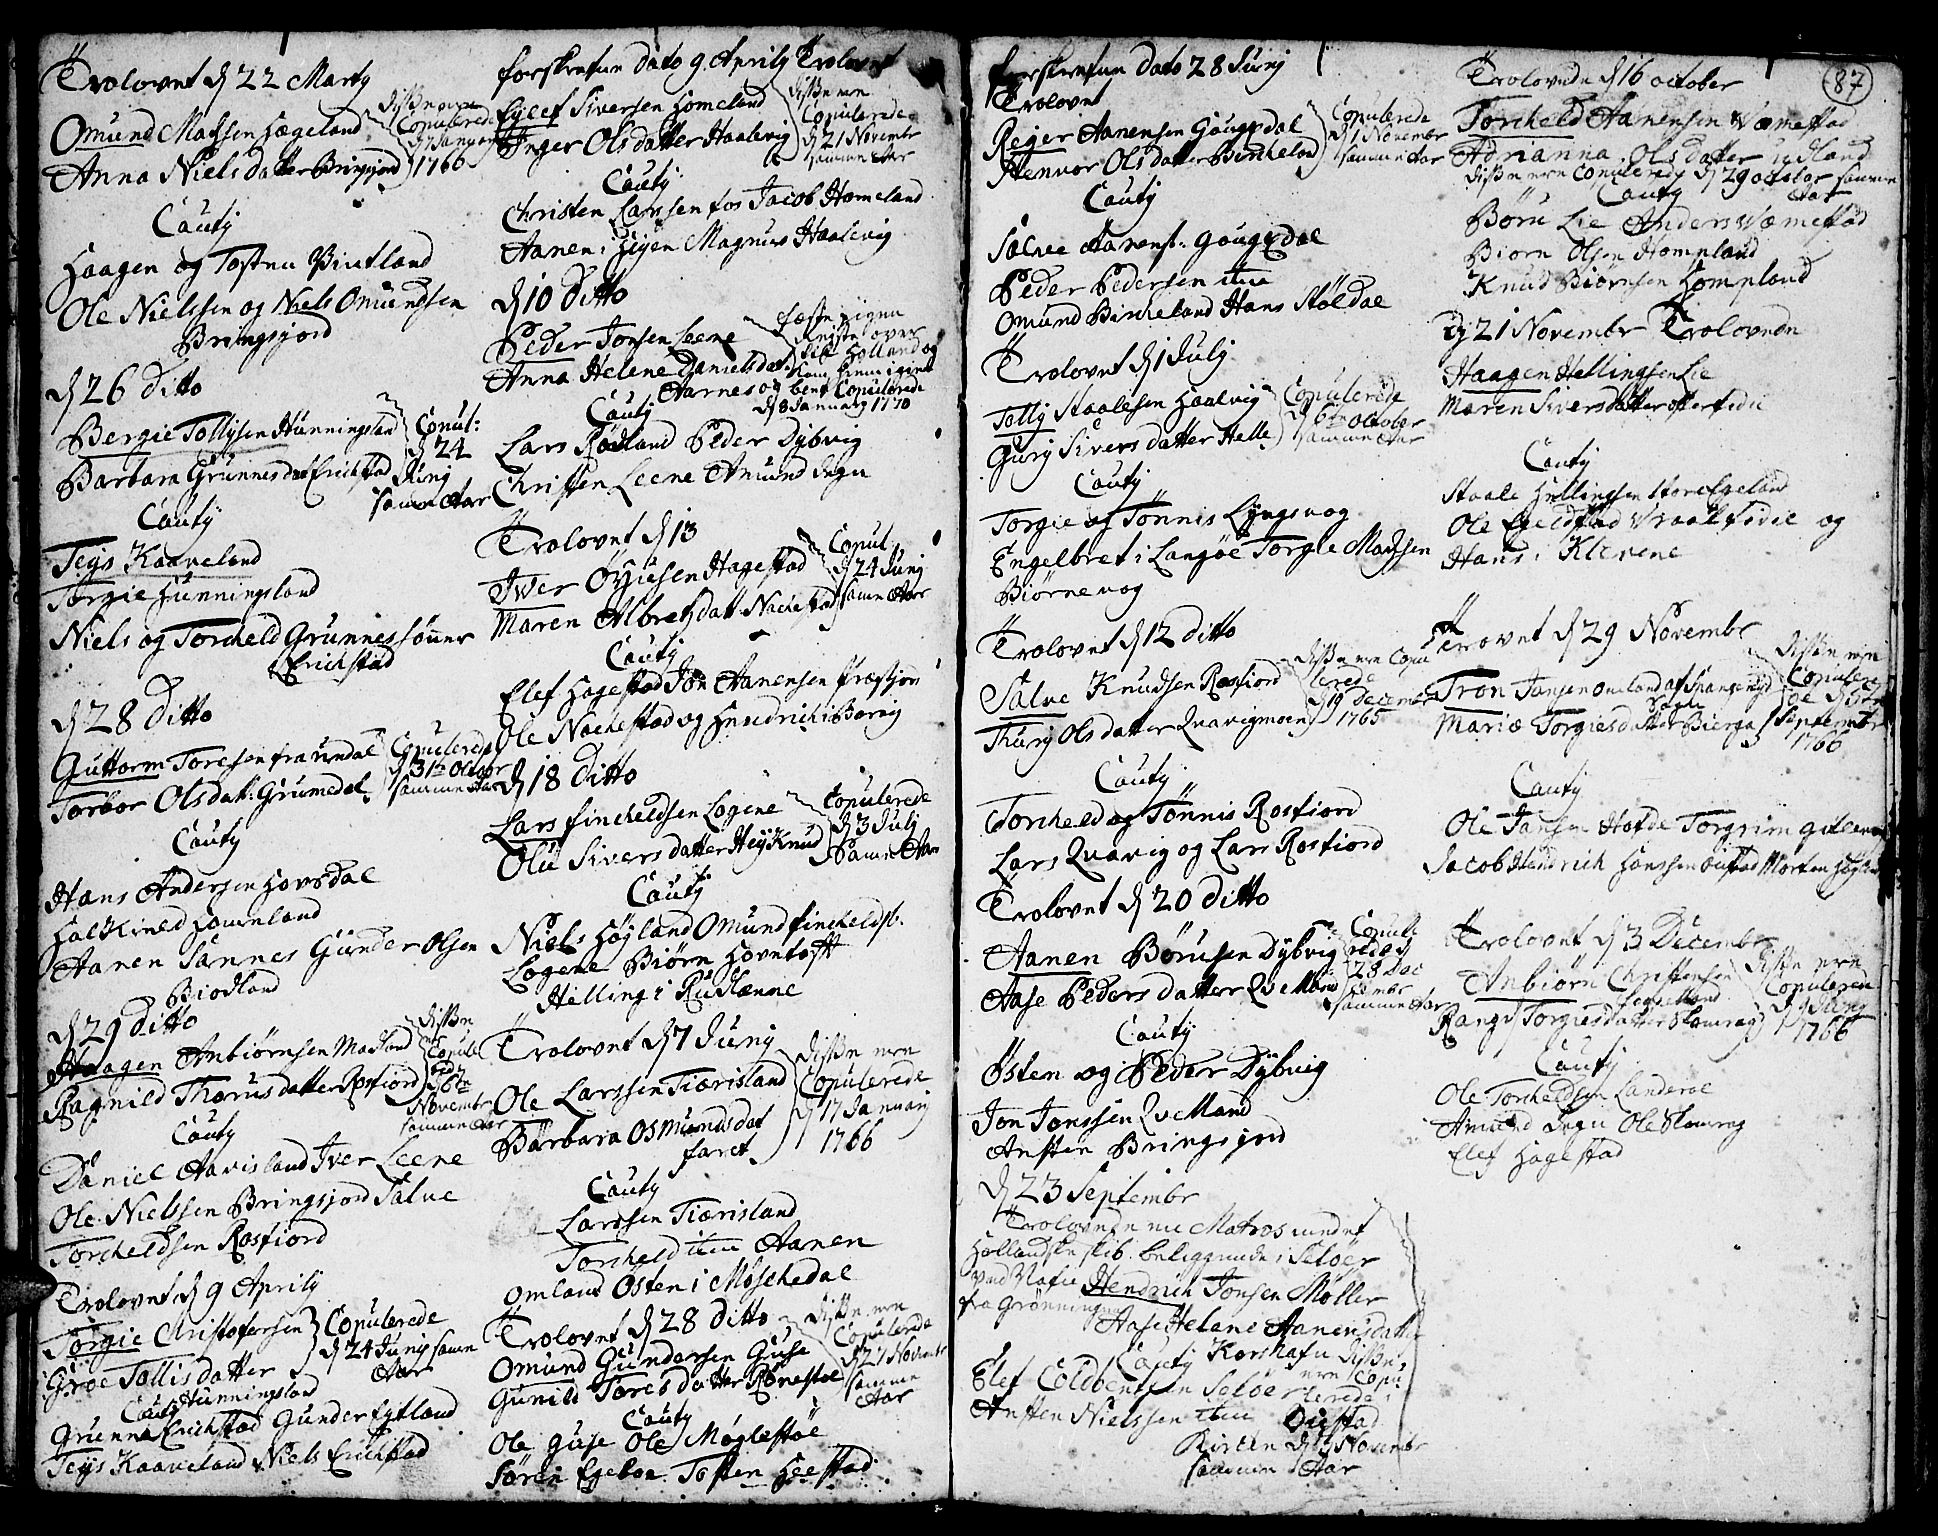 Trolovet d 22 Marty
Omund Madssen Hægeland
Anna Nielsdatter Bringsjord
Disse ere
Copulerede
d 7 January
1766
Cauty
Haagen og Tosten Vintland
Ole Nielssen og Niels Omundsen
Bringsjord
d 26 Ditto
Bergie Tollijsen Hunningsland
Barbara Grunnesdat Erichstad
Copul:
d 24
Junij
samme Aar
Cauty
Teijs Kaaveland
Torgie Hunningsland
Niels og Torcheld Grunnessønner
Erichstad
d 28 Ditto
Guttorm Toresen fra Undal
Torbor Olsdatt: Grumedal
Copulerede
d 31te Octobr
samme Aar
Cauty
Hans Andersen Hovsdal
Halkield Houenland
Aanen Sannes Gunder Olsen
Biodland
d 29 Ditto
Haagen Anbiørnsen Madland
Ragnild Thorusdatter Rosfiord
Disse
Copule
rede
d 6te
Novembr
samme Aar
Cauty
Daniel Aavisland Iver Leene
Ole Nielssen Bringsjord Salve
Torcheldsen Rosfiord
Trolovet d 9 Aprily
Torgie Christofersen
Groe Tollisdatter
Hunningsland
Copulerede
d 24 Junij samme
Aar
Cauty
Grunne Erichstad Gunder Eytland
Teijs Kaaveland Niels Erichstad
forskrefne dato 9 Aprily Trolovet
Eylef Siversen Homeland
Inger Olsdatter Haalevig
Disse ere
Copulerede
d 21 Novembr
samme Aar
Cauty
Christen Larssen for Jacob Homeland
Aanen i Heyen Magnus Haalevig
d 10 Ditto
Peder Jonsen Leene
Anna Helene Danielsdat:
Aarnes
Fæste igien
Reiste over
til Holland og
kom hiem igien
og bent Copulerede
d 8 January 1770
Cauty
Lars Rødland Peder Dybvig
Christen Leene Amund Degn
Trolovet d 13
Iver Øyusen Hagestad
Maren Albretsdatt Nachestad
Copul.
d 24 Junij
samme Aar
Cauty
Elef Hagestad Jon Aanensen Fræstjon
Ole Nachestad og Hendrich i Barvig
d 18 Ditto
Lars Fincheldsen Logene
Olu Siversdatter Høy Knud
Copulerede
d 3 Julj
samme Aar
Cauty
Niels Højland Omund Fincheldss.
Logene Biørn Hovntofft
Helling i Rudlænne
Trolovet d 7 Junij
Ole Larssen Tiørisland
Barbara Osmundsdat
faret
Disse ere
Copulerede
d 17 January
1766
Cauty
Larssen Tiørisland
Torcheld item Aanen
Omland Østen i Møskedal
Trolovet d 28 Ditto
Omund Gundersen Guse
Gunild Toresdatter Rønestøe
Disse ere
Copulerede
d 27 Novembr
samme
Aar
Cauty
Ole Guse Ole Møglestøe
Søren Egeboe Tosten Heestad
87
forskrefne dato 28 Junij
Trolovet
Rejer Aanensen Gougdal
Stenvor Olsdatter Bircheland
Copulerede
d 1 Novembr
samme Aar
Cauty
Salve Aanens: Gougdal
Peder Pedersen item
Omund Bircheland Hans Støldal
Trolovet d 1 Julj
Tollj Staalesen Haalvig
Gurj Siversdatter Helle
Copulerede
d 6te October
samme Aar
Cauty
Torgie og Tønnis Lyngsvog
Engelbret i Langøe Torgie Madssen
Biørnevog
Trolovet d 12 Ditto
Salve Knudsen Rosfiord
Thurj Olsdatter Qvavigmoen
Disse ere Copu
lerede
d 19 Decembr
1765
Cauty
Torcheld og Tønnis Rosfiord
Lars Qvavig og Lars Rosfiord
Trolovet d 20 Ditto
Aanen Børusen Dybvig
Aase Pedersdatter Qvelland
Copule
rede d
28 Dec
embr
samme Aar
Cauty
Østen og Peder Dybvig
Jon Jonssen Qvelland
Ansten Bringsjord
d 23 Septembr
Trolovede en Matros med et
Hollandske skib beliggende i Seløer
ved Nafn Hendrich Jonsen Møller
fra Grønningen
Aase Helene Aanensdatter
Korshafn
Cauty
Elef Coldbentsen Seløer
Ansten Nielssen item
Disse
ere Copu
lerede i
Oustad
Kircke d 5 Novembr
samme Aar
Trolovede d 16 October
Torcheld Aanensen Væmestad
Adrianna Olsdatter Udland
Disse ere Copulerede d 29 October samme
Aar
Cauty
Børu Lie Anders Væmestad
Biørn Olsen Hompland
Knud Biørnsen Hompland
d 21 Novembr Trolovede
Haagen Hellingsen Lie
Maren Siversdatter Osterfidie
Cauty
Staale Hellingsen Store Egeland
Ole Egeldstad Vraalsfidie og
Hans i Klevene
Trovet d 29 Novembr
Tron Jansen Omeland af Spangereyd
Marie Torgiesdatter Bierga
Disse ere
Copulere
de d 5te
Septembr
1766
Cauty
Ole Jansen Hofde Torgrim Gitlevog
Jacob Hendrich Hanssen Oustad Morten Høyland
Trolovet d 3 December
Anbiørn Christensen
Rangj Torgiesdatter Skomrag
Disse ere
Copulerede
d 9 Junij
1766
Cauty
Ole Torcheldsen Landeroe
Amund Degn Ole Skomrag
Elef Hagestad